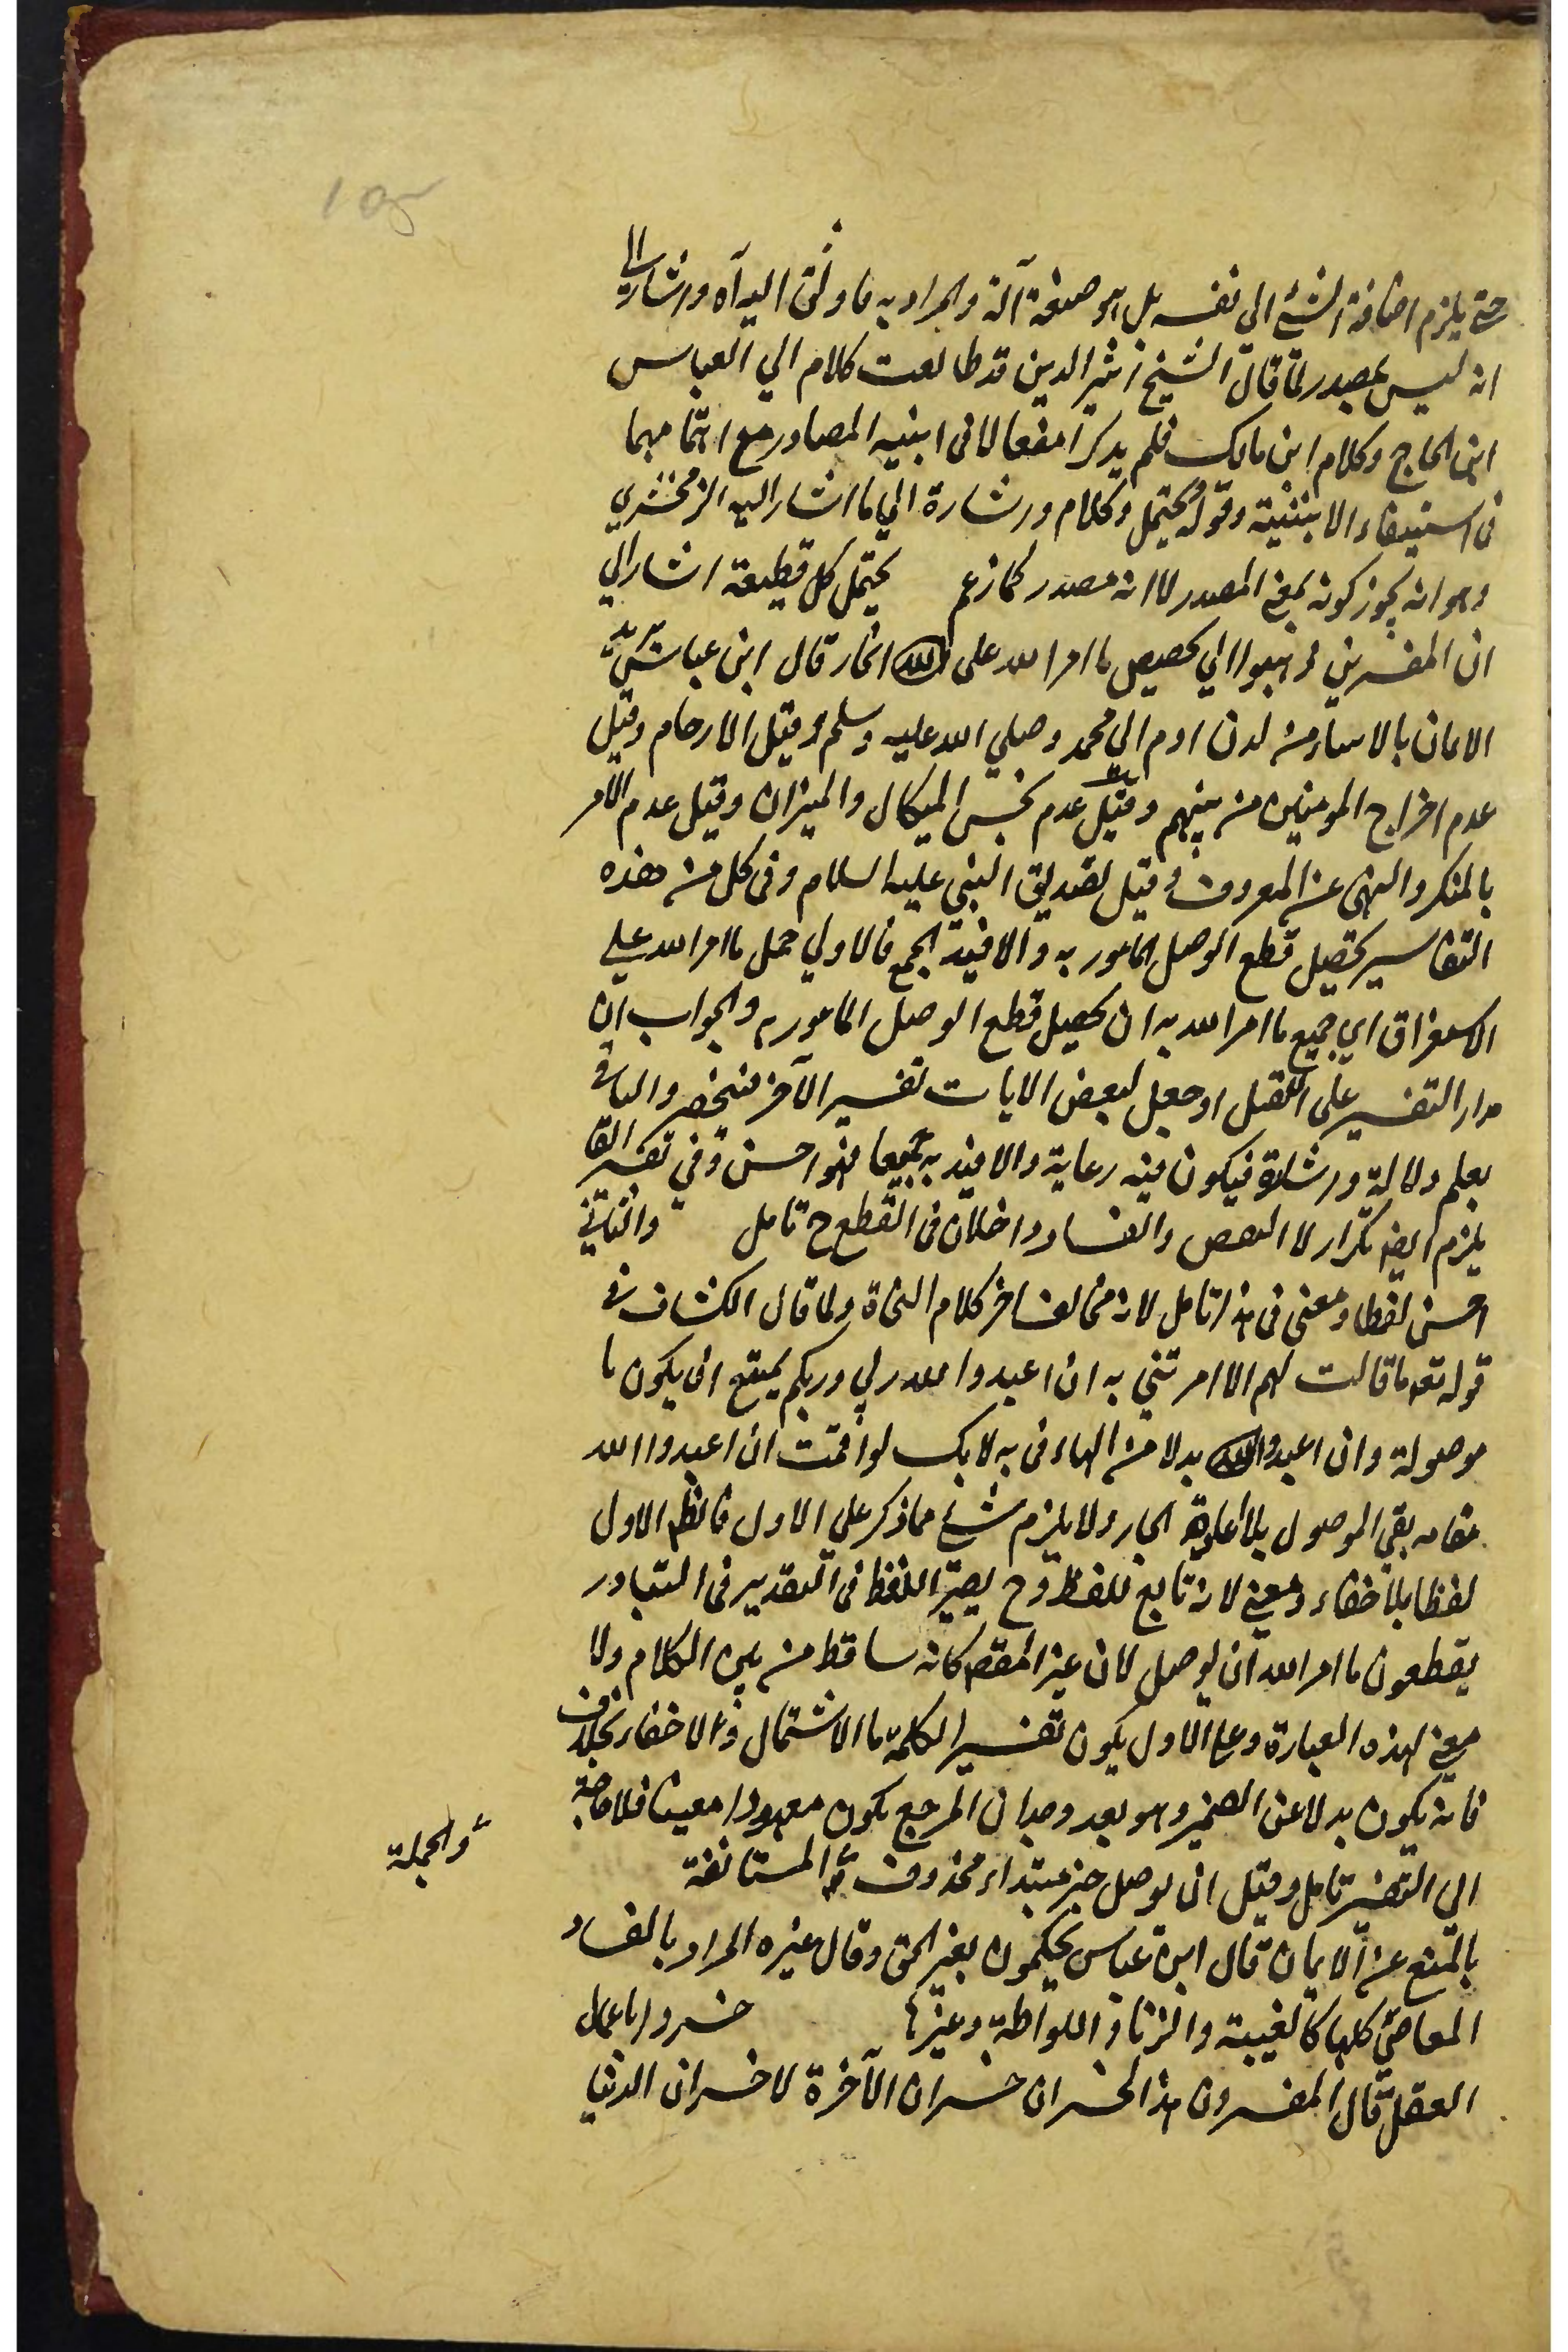 105
حتى يلزم اضافة الشئ الى نفسه بل هو صيغة آلة والمراد به ما وثق اليه آه ورشارة الى
انه ليس بمصدر لما قال الشيخ اثير الدين قد طالعت كلام ابي العباس
ابن الحاج وكلام ابن مالك فلم يذكرا مفعالا في ابنيه المصادر مع اهتمامهما
في استيفاء الابنية وقوله يحتمل وكلام ورشارة الى ما اشار اليه الزمخشري
وهو انه يجوز كونه بمعنى المصدر لا انه مصدر كما زعم يحتمل كل قطيعة اشار الى
ان المفسرين ذهبوا الى تخصيص ما امر الله على قال ابن عباس
الايمان بالاسار من لدن ادم الى محمد وصلي الله عليه وسلم وقيل الارحام وقيل
عدم اخراج المومنين من بينهم وقيل عدم بخس الميكال والميزان وقيل عدم الامر
بالمنكر والنهى عن المعروف وقيل تصديق النبي عليه السلام وفى كل من هذه
التفاسير تحصيل قطع الوصل المامور به والافيد الجمع فالاولي حمل ما امر الله على
الاستغراق اي جميع ما امر الله به ان تحصيل قطع الوصل المامور به والجواب ان
مدار التفسير على النقل او جعل بعض الايات تفسير الآخر والباقي
يعلم دلالة ورشارة فيكون فيه رعاية والافيد به جميعا فهو احسن وفي تفسير القا
يلزم ايضا تكرار لا النقص والفساد واخلان في القطع ح تامل والثاني
احسن لفظا ومعنى في هذا تامل لانه مخالف كلام النحاة ولما قال الكشاف في
قوله تعه ما قالت لهم الا ما امرتني به ان اعبدوا الله ربي وربكم يمتنع ان يكون ما
موصولة وان اعبدوا الله بدلا من الهاء في به لانك لو اقمت ان اعبدوا الله
مقامه بقي الموصول بلا اعادة الجار ولا يلزم شئ مما ذكر على الاول فانظر الاول
لفظا بلا خفاء ومعنى لانه تابع للفظ وح يصير اللفظ في التقدير في التبادر
يقطعون ما امر الله ان يوصل لان غير المقصود كانه ساقط من بين الكلام ولا
معنى لهذه العبارة وعلى الاول يكون تفسير الكلمة ما الاشتمال والاخفاء بخلاف
فانه يكون بدلا عن الضمير وهو بعد وجدان المرجع يكون معهودا معينا فلا حاجة
الى التفسير تامل وقيل ان يوصل خبر مبتداء محذوف المستانفة
والجملة
بالمنع عن الايمان قال ابن عباس يحكمون بغير الحق وقال غيره المراد بالفساد
المعاصي كلها كالغيبة والزنا واللواطة وغيرها خسروا باعمال
العقل قال المفسرون هذا الخسران خسران الآخرة لا خسران الدنيا